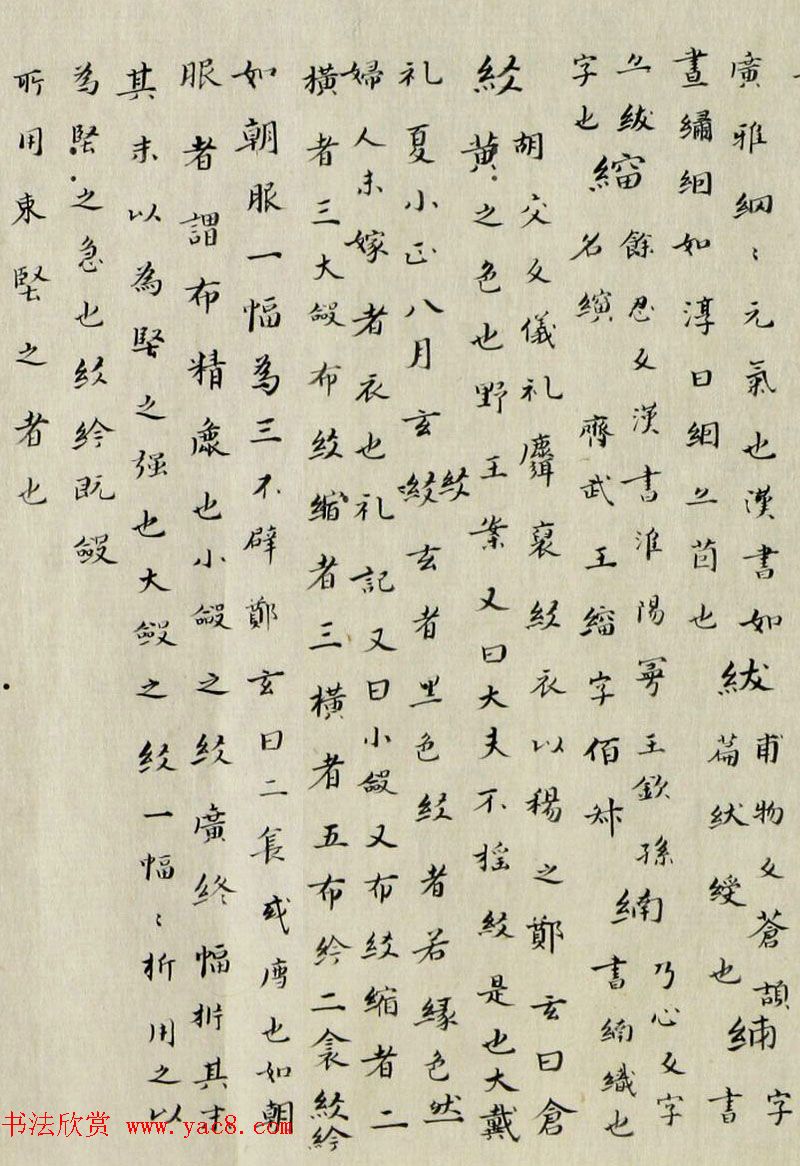 廣雅絪〻元氣也漢書如
晝繡絪如淳曰絪亦茵也
紱
甫物反蒼頡
篇紱綬也
䋻
字
書
亦紱
字也
縯
餘忍反漢書淮陽憲王欽孫
名縯 齊武王縯字伯升
䋻
乃心反字
書䋻織也
絞
胡交反儀礼麛裘絞衣以裼之鄭玄曰倉
黃之色也野王案又曰大夫不揺絞是也大戴
礼夏小正八月玄絞絞玄者黑色絞者若緑色然
婦人未嫁者衣也礼記又曰小斂又布絞縮者二
横者三大斂布絞縮者三横者五布紟二衾絞紟
如朝服一幅為三不辟鄭玄曰二
或
也如朝
服者謂布精麁也小斂之絞廣終幅析其末
其末以為堅之强也大斂之絞一幅〻析用之以
為堅之急也絞紟既斂
所用束堅之者也
书法欣赏 www.yac8.com